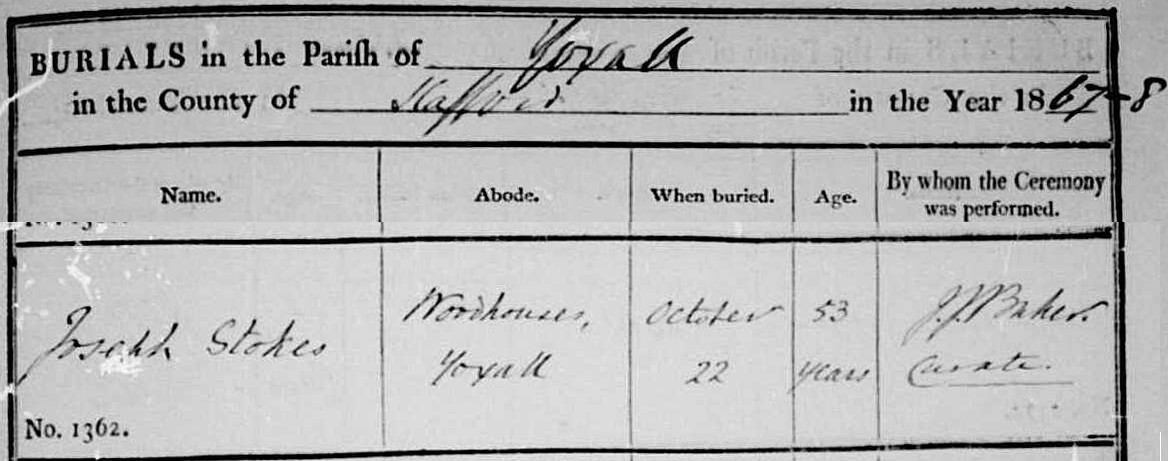 BURIALS in the Parish of Yoxall
in the County of Stafford in the Year 1867-8
Name. Abode. When buried. Age. By whom the Ceremony was performed.
Joseph Stokes Woodhouses, Yoxall October 22 53 years J. Baker. Curate.
No. 1362.